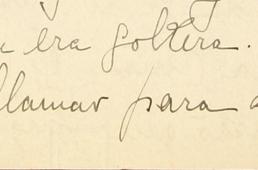 era soltera.
llamar para